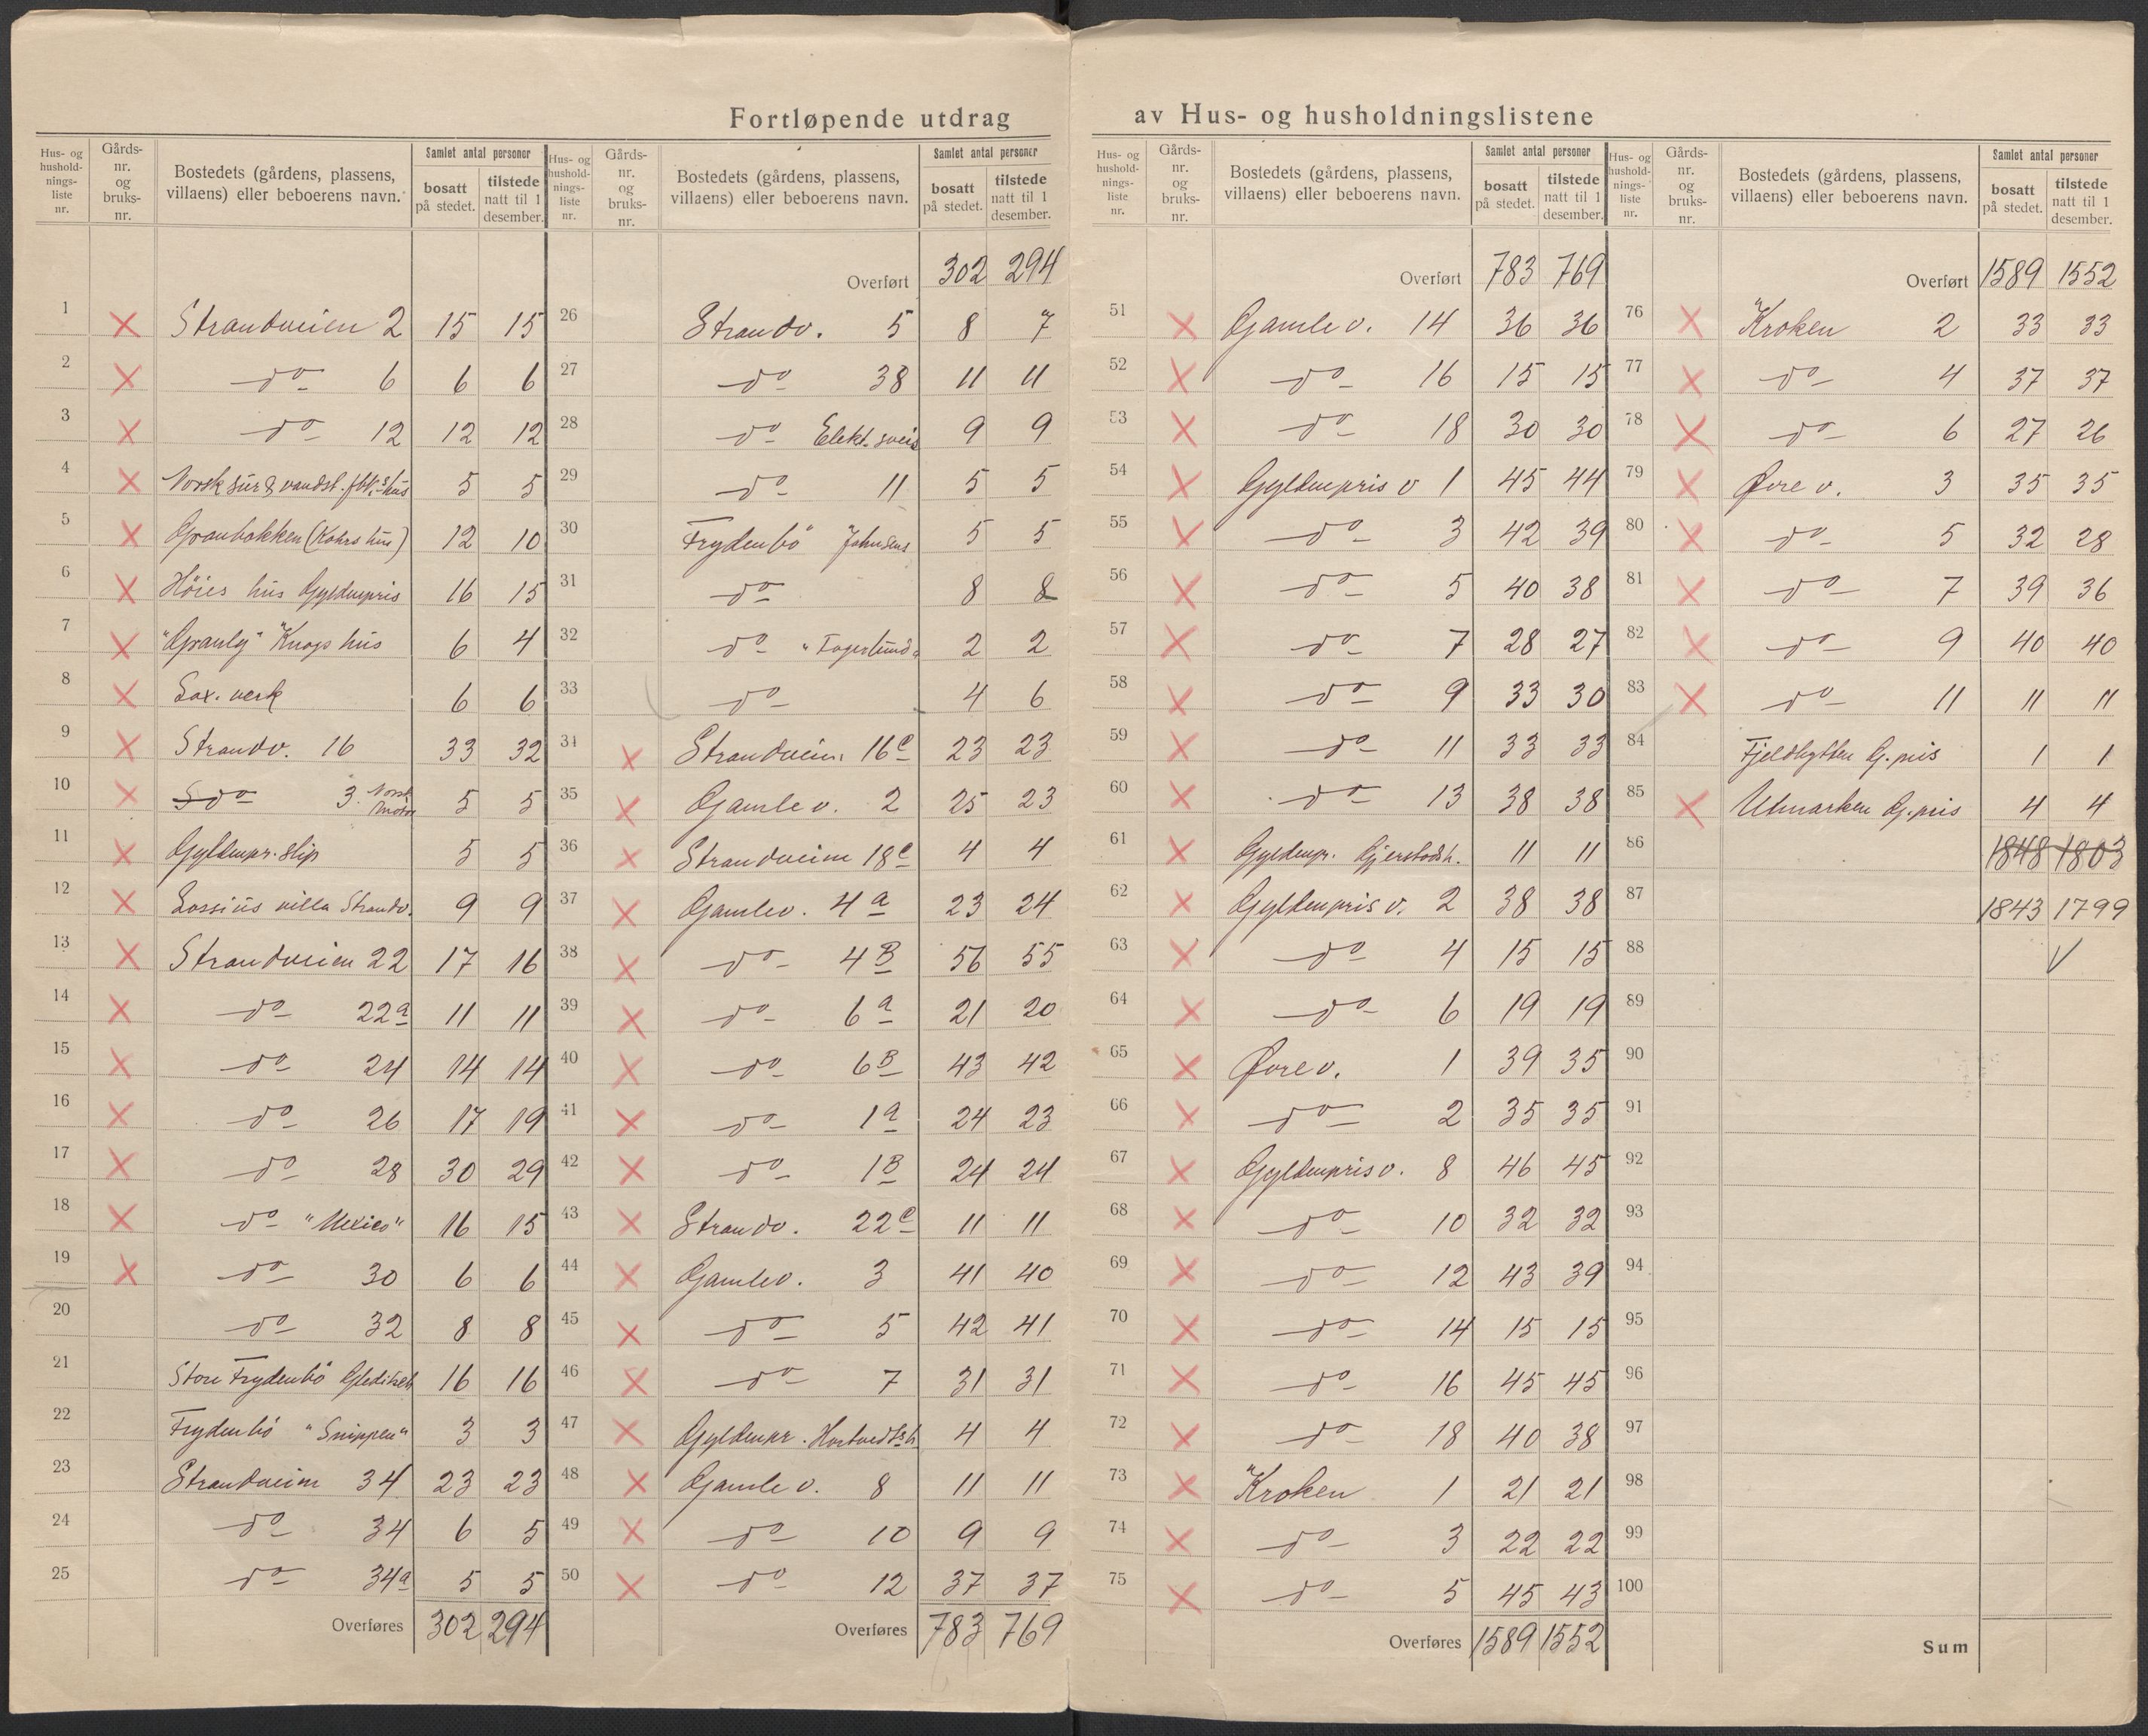 Fortløpende utdrag av Hus- og husholdningslistene
Hus- og hushold-nings-liste nr. Gårds-nr. og bruks-nr. Bostedets (gårdens, plassens, villaens) eller beboerens navn. Samlet antal personer bosatt på stedet. tilstede natt til 1 desember.
1 Strandveien 2 15 15
2 do 6 6 6
3 do 12 12 12
4 Norsk sur & vandst. fbk.s hus 5 5
5 Granbakken (Kahrs hus) 12 10
6 Höies hus Gyldenpris 16 15
7 "Granly" Knaps hus 6 4
8 Lax. verk 6 6
9 Strandv. 16 33 32
10 do 3 Norsk Motor 5 5
11 Gyldenpr. Slip 5 5
12 Lossius villa Strandv. 9 9
13 Strandveien 22 17 16
14 do 22a 11 11
15 do 24 14 14
16 do 26 17 19
17 do 28 30 29
18 do "Mexico" 16 15
19 do 30 6 6
20 do 32 8 8
21 Store Frydenbö Gleditsch 16 16
22 Frydenbö "Snippen" 3 3
23 Strandveien 34 23 23
24 do 34 6 5
25 do 34a 5 5
Overføres 302 294
Hus- og hushold-nings-liste nr. Gårds-nr. og bruks-nr. Bostedets (gårdens, plassens, villaens) eller beboerens navn. Samlet antal personer bosatt på stedet. tilstede natt til 1 desember.
Overført 302 294
26 Strandv. 5 8 7
27 do 38 11 11
28 do Elekt. sveis 9 9
29 do 11 5 5
30 Frydenbö Johnsens 5 5
31 do 8 8
32 do "Fagerlund" 2 2
33 do 4 6
34 Strandveien 16c 23 23
35 Gamle v. 2 25 23
36 Strandveien 18c 4 4
37 Gamlev. 4a 23 24
38 do 4B 56 55
39 do 6a 21 20
40 do 6B 43 42
41 do 1a 24 23
42 do 1B 24 24
43 Strandv. 22c 11 11
44 Gamlev. 3 41 40
45 do 5 42 41
46 do 7 31 31
47 Gyldenpr. Hortvedts h. 4 4
48 Gamle v. 8 11 11
49 do 10 9 9
50 do 12 37 37
Overføres 783 769
Hus- og hushold-nings-liste nr. Gårds-nr. og bruks-nr. Bostedets (gårdens, plassens, villaens) eller beboerens navn. Samlet antal personer bosatt på stedet. tilstede natt til 1 desember.
Overført 783 769
51 Gamle v. 14 36 36
52 do 16 15 15
53 do 18 30 30
54 Gyldenpris v 1 45 44
55 do 3 42 39
56 do 5 40 38
57 do 7 28 27
58 do 9 33 30
59 do 11 33 33
60 do 13 38 38
61 Gyldenpr. Gjerstadsh. 11 11
62 Gyldenpris v. 2 38 38
63 do 4 15 15
64 do 6 19 19
65 Øvre v. 1 39 35
66 do 2 35 35
67 Gyldenpris v. 8 46 45
68 do 10 32 32
69 do 12 43 39
70 do 14 15 15
71 do 16 45 45
72 do 18 40 38
73 Kroken 1 21 21
74 do 3 22 22
75 do 5 45 43
Overføres 1589 1552
Hus- og hushold-nings-liste nr. Gårds-nr. og bruks-nr. Bostedets (gårdens, plassens, villaens) eller beboerens navn. Samlet antal personer bosatt på stedet. tilstede natt til 1 desember.
Overført 1589 1552
76 Kroken 2 33 33
77 do 4 37 37
78 do 6 27 26
79 Øvre v. 3 35 35
80 do 5 32 28
81 do 7 39 36
82 do 9 40 40
83 do 11 11 11
84 Fjeldhytten G. pris 1 1
85 Utmarken G. pris 4 4
86 1848 1803
87 1843 1799
88
89
90
91
92
93
94
95
96
97
98
99
100
Sum